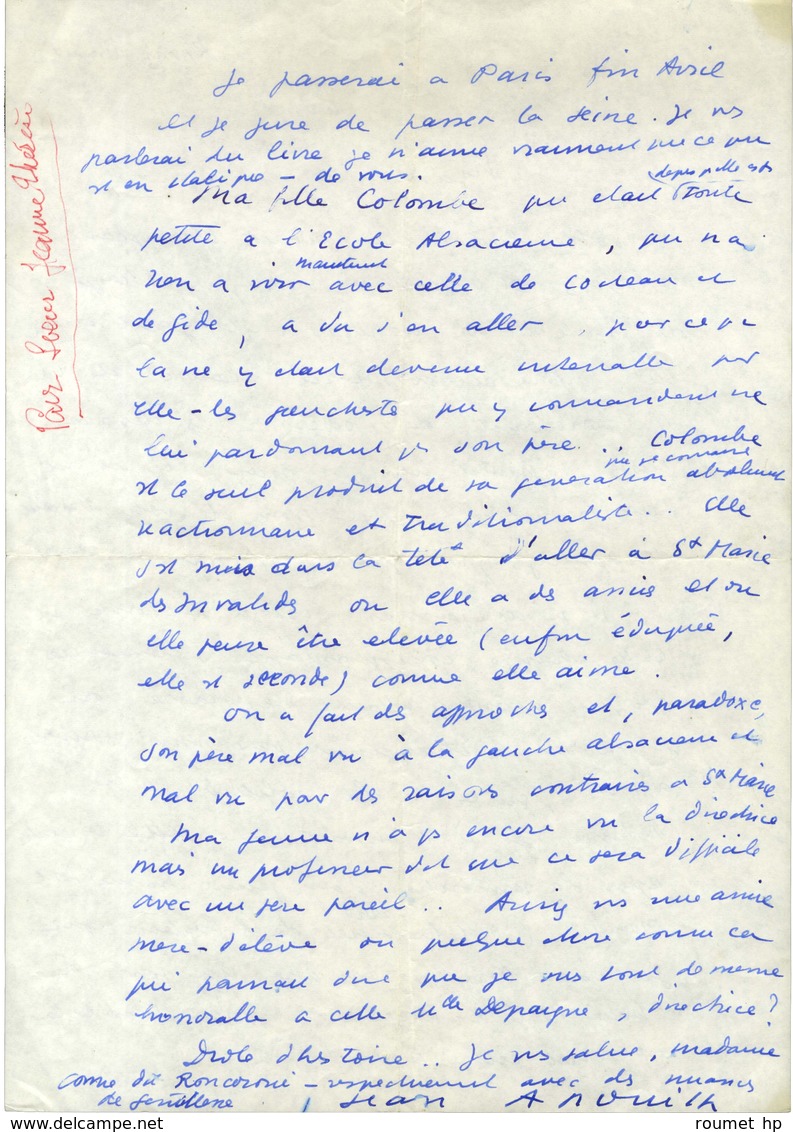 Je passerai a Paris fin Avril
et je jure de passer la Seine. Je vs
parlerai du livre je n'aime vraiment que ce qui
est en italique – de vous.
Ma fille Colombe qui etait depuis qu'elle est toute
petite a l'Ecole Alsacienne, qui n'a
rien a voir maintenant avec celle de Cocteau et
de Gide, a du s'en aller, parce que
la vie y etait devenue intenable pour
elle – les gauchistes qui y commandent ne
lui pardonnant ps son père... Colombe
est le seul produit de sa generation que je connaisse absolument
reactionnaire et traditionnaliste.. Elle
s'est mis dans la tete d'aller à Ste Marie
des Invalides ou elle a des amies et ou
elle pense être elevée (enfin éduquée,
elle est seconde) comme elle aime.
On a fait des approches et, paradoxe,
son père mal vu à la gauche alsacienne est
mal vu par des raisons contraires a Ste Marie
Ma femme n'a ps encore vu la directrice
mais un professeur dit que ce sera difficile
avec un pere pareil.. Auriez vs une amie
mere-d'élève ou quelque chose comme ca
qui pourrait dire que je suis tout de meme
honorable a cette Melle Depargne, directrice?
Drole d'histoire.. Je vs salue, madame
comme dit Roncoroni – respectueusement avec des nuances
de gentillesse
Jean Anouilh
Pour Soeur Jeanne Thérèse
roumet hp